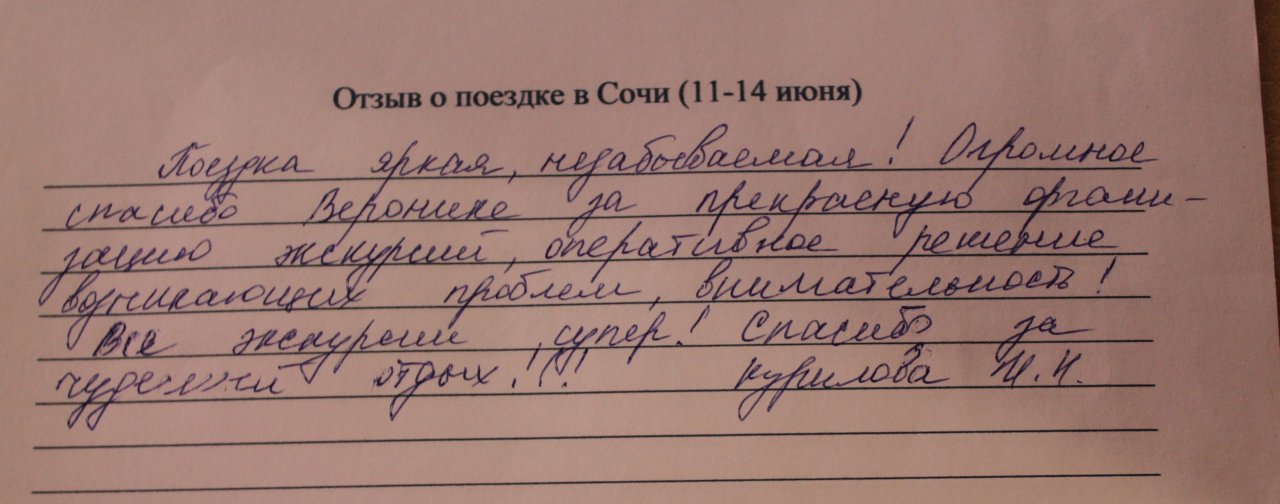 Отзыв о поездке в Сочи (11-14 июня)
Поездка яркая, незабываемая! Огромное
спасибо Веронике за прекрасную органи-
зацию экскурсий, оперативное решение
возникающих проблем, внимательность!
Все экскурсии супер! Спасибо за
чудесный отдых!!! Курилова Н.Н.